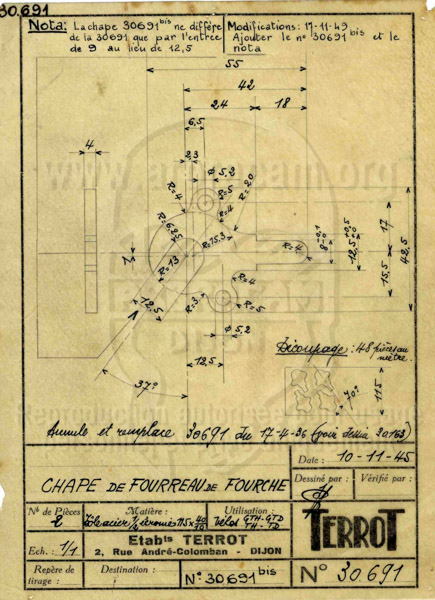 30.691
Nota: La chape 30691 bis ne diffère
de la 30691 que par l'entrée
de 9 au lieu de 12,5
Modifications: 17-11-49
Ajouter le n° 30691 bis et le
nota
55
42
24
18
6,5
4
2,3
ø 5,2
R=4
R=5
R=20
R=4
R=6,25
R=15,3
R=4
8
12,5
17
42,5
15,5
R=13
R=4
R=3
R=5
12,5
ø 5,2
12,5
37°
Découpage: 48 pièces au
mètre
70°
115
Annule et remplace 30691 du 17-4-36
Date: 10-11-45
CHAPE DE FOURREAU DE FOURCHE
Dessiné par:
Vérifié par:
Nb de Pièces
2
Matière:
Utilisation:
Vélos GTH-GTD
TH-TD
TERROT
Ech.: 1/1
Etabts TERROT
2, Rue André-Colomban - DIJON
Repère de
tirage:
Destination:
N° 30691 bis
N° 30.691